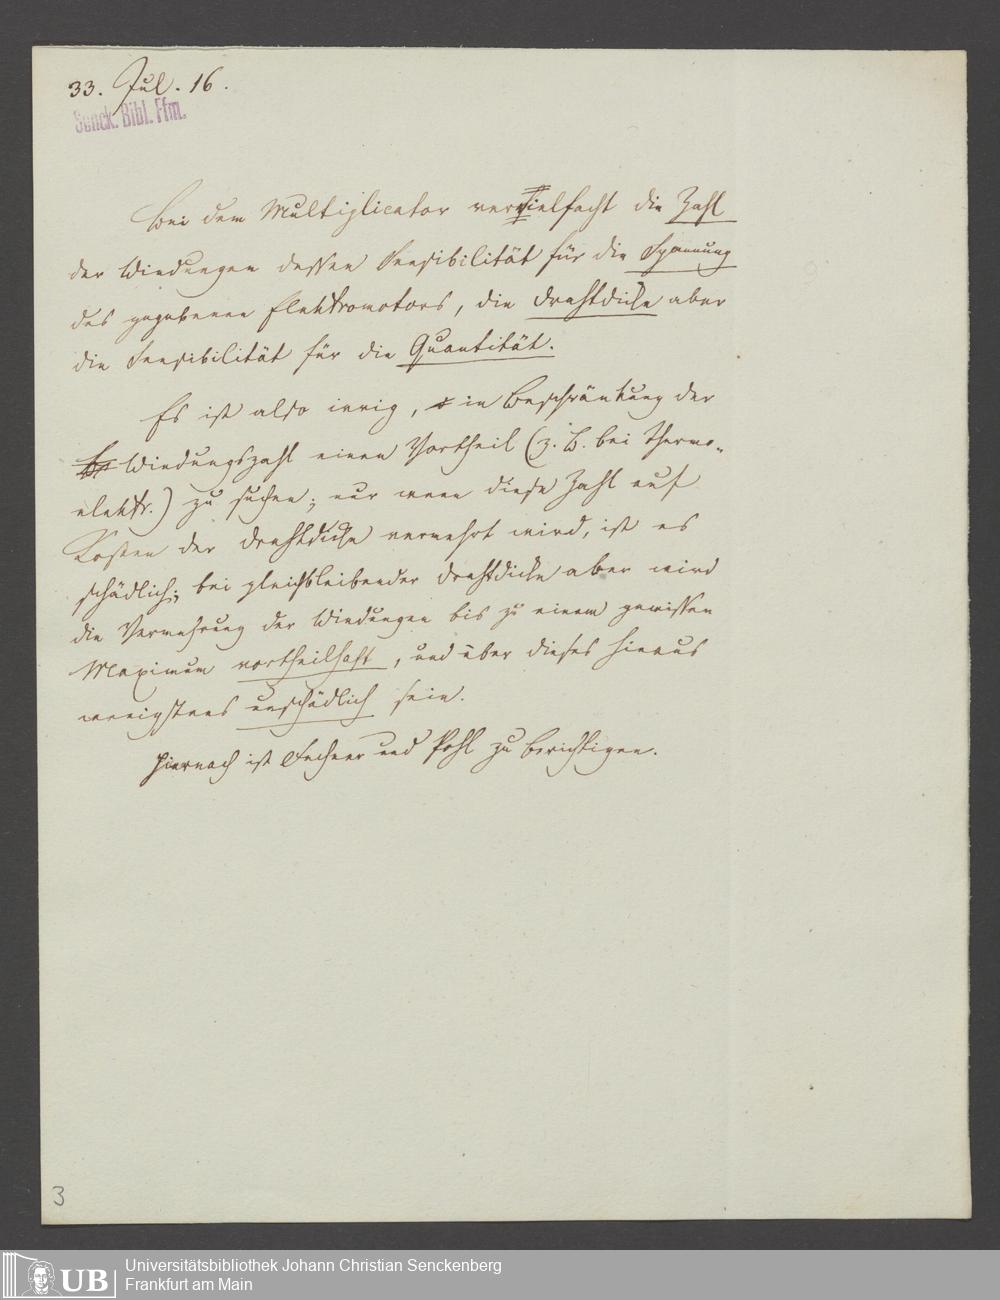 33. Jul. 16.
Senck. Bibl. Ffm.
Bei dem Multiplicator vervielfacht die Zahl
der Windungen dessen Sensibilität für die Spannung
des gegebenen Elektromotors, die Drahtdicke aber
die Sensibilität für die Quantität.
Es ist also irrig, in Beschränkung der
Windungszahl einen Vortheil (z. B. bei Thermo-
elektr.) zu suchen; nur wenn diese Zahl auf
Kosten der Drahtdicke vermehrt wird, ist es
schädlich; bei gleichbleibender Drahtdicke aber wird
die Vermehrung der Windungen bis zu einem gewissen
Maximum vortheilhaft, und über dieses hinaus
wenigstens unschädlich sein.
Hiernach ist Fechner und Pohl zu berichtigen.
3
UB
Universitätsbibliothek Johann Christian Senckenberg
Frankfurt am Main